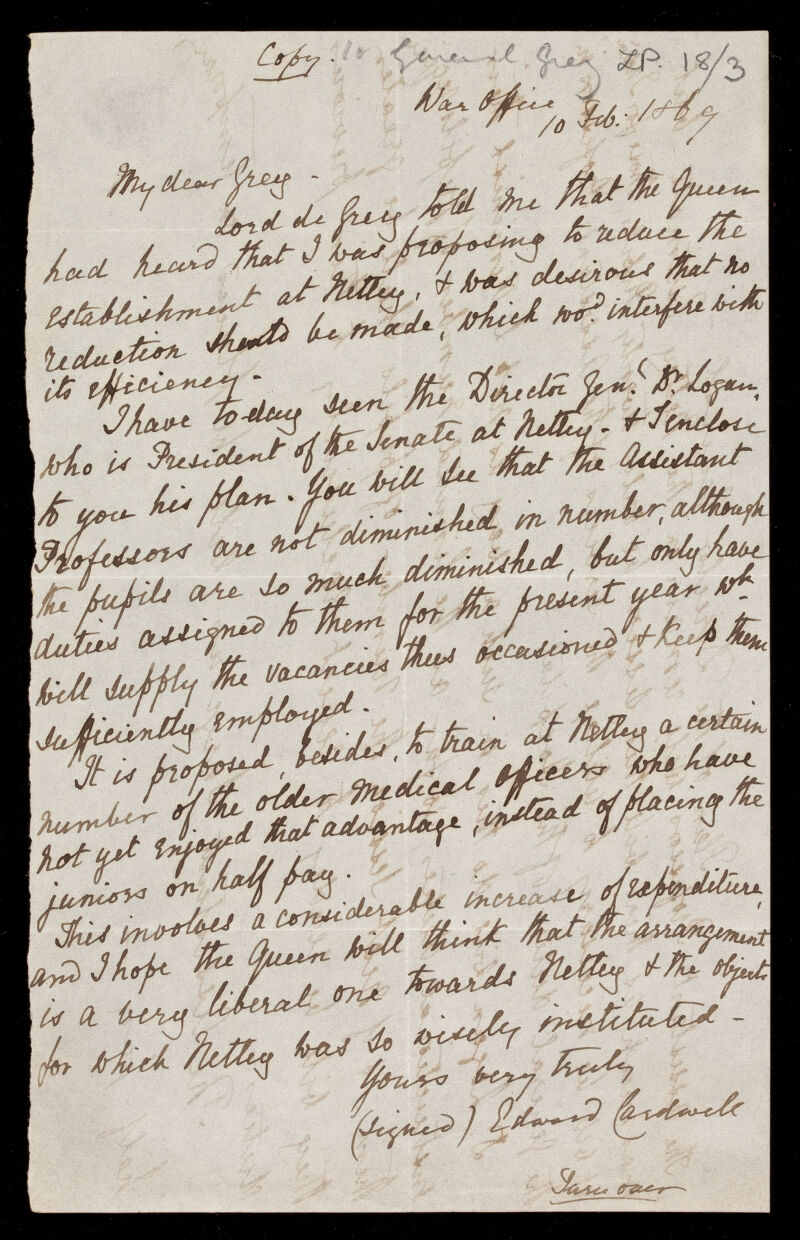 Copy. to General Grey LP. 18/3
War Office
10 Feb. 1869
My dear Grey -
Lord de Grey told me that the Queen
had heard that I was proposing to reduce the
establishment at Netley, & was desirous that no
reduction should be made, which wod. interfere with
its efficiency -
I have to day seen the Director Genl. Dr. Logan,
who is President of the Senate at Netley - & I enclose
to you his plan. You will see that the Assistant
Professors are not diminished in number, although
the pupils are so much diminished, but only have
duties assigned to them for the present year wh.
will supply the vacancies thus occasioned & keep them
sufficiently employed.
It is proposed, besides, to train at Netley a certain
number of the older Medical Officers who have
not yet enjoyed that advantage, instead of placing the
juniors on half pay.
This involves a considerable increase of expenditure,
and I hope the Queen will think that the arrangement
is a very liberal one towards Netley & the objects
for which Netley was so wisely instituted -
Yours very truly
(signed) Edward Cardwell
Turn over